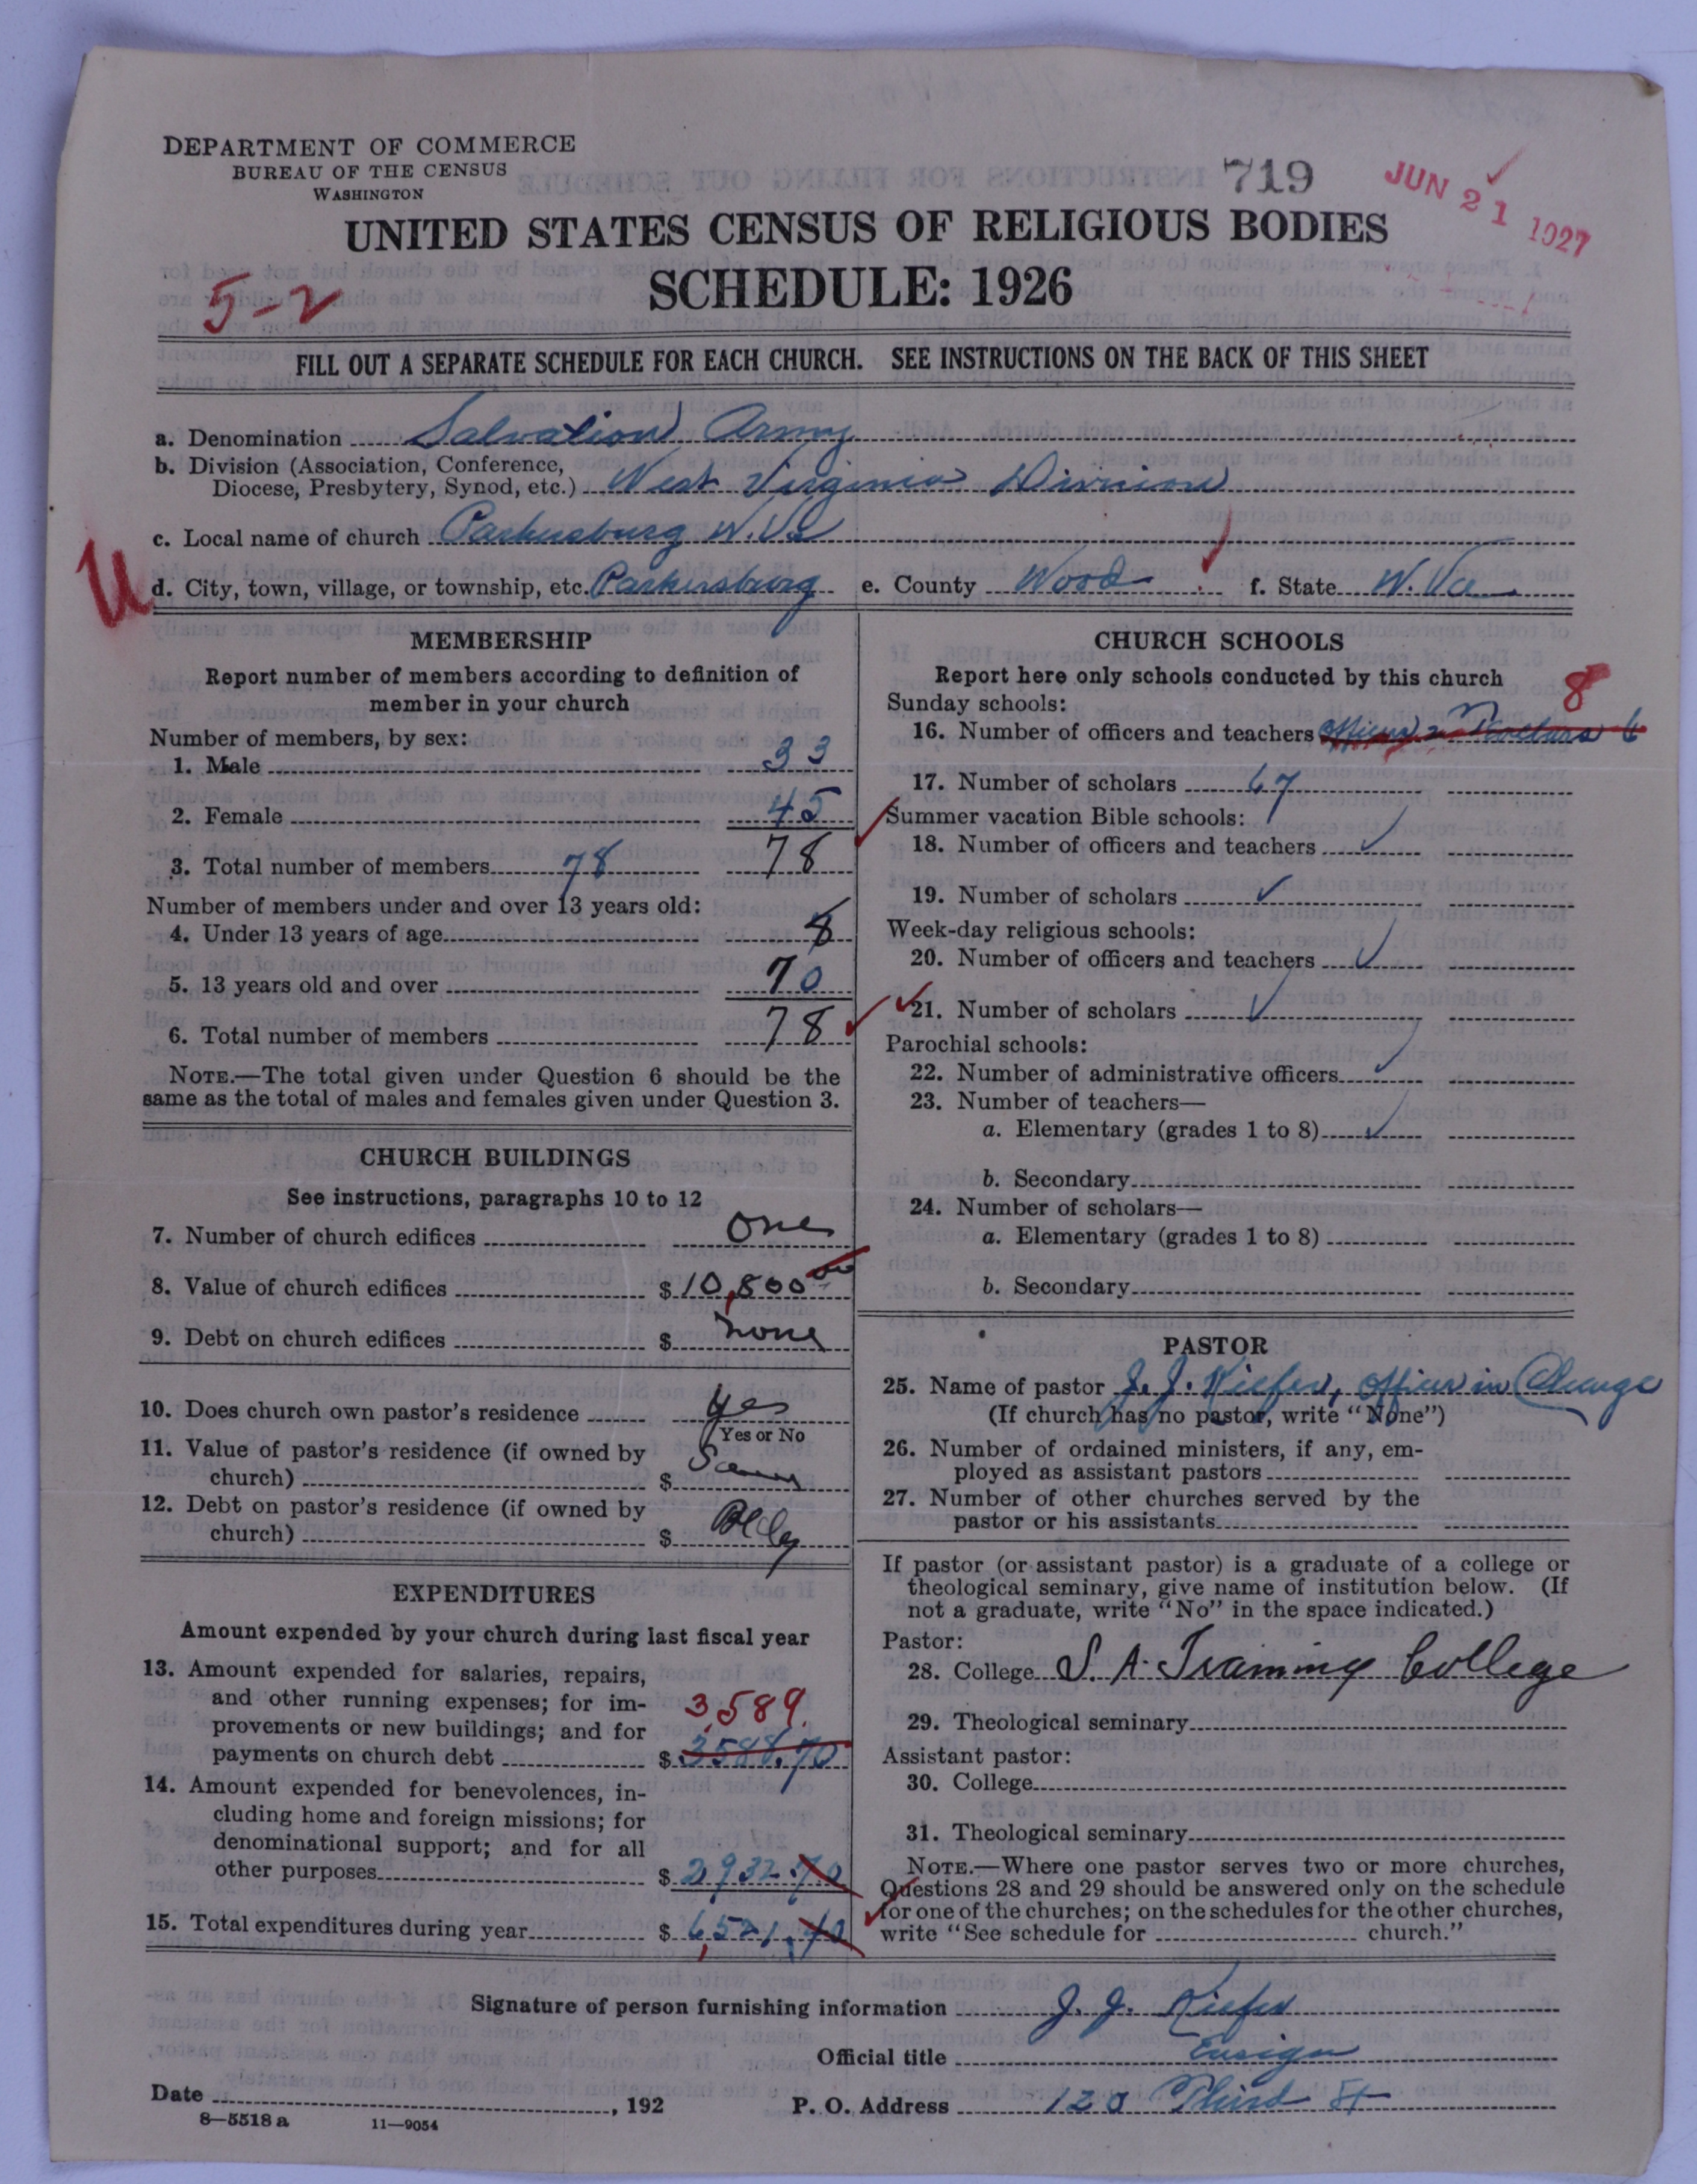 DEPARTMENT OF COMMERCE
BUREAU OF THE CENSUS
WASHINGTON
719
JUN 21 1927
UNITED STATES CENSUS OF RELIGIOUS BODIES
SCHEDULE: 1926
5-2
FILL OUT A SEPARATE SCHEDULE FOR EACH CHURCH. SEE INSTRUCTIONS ON THE BACK OF THIS SHEET
a. Denomination Salvation Army
b. Division (Association, Conference,
Diocese, Presbytery, Synod, etc.) West Virginia Division
c. Local name of church Parkersburg W.Va
U
d. City, town, village, or township, etc. Parkersburg e. County Wood f. State W. Va
MEMBERSHIP
Report number of members according to definition of
member in your church
Number of members, by sex:
1. Male 33
2. Female 45
3. Total number of members 78 78
Number of members under and over 13 years old:
4. Under 13 years of age 8
5. 13 years old and over 70
6. Total number of members 78
NOTE.—The total given under Question 6 should be the
same as the total of males and females given under Question 3.
CHURCH BUILDINGS
See instructions, paragraphs 10 to 12
7. Number of church edifices One
8. Value of church edifices $10,800 00
9. Debt on church edifices $ none
10. Does church own pastor's residence yes
Yes or No
11. Value of pastor's residence (if owned by
church) $ Same
12. Debt on pastor's residence (if owned by
church) $ Bldg
EXPENDITURES
Amount expended by your church during last fiscal year
13. Amount expended for salaries, repairs,
and other running expenses; for im-
3,589.
provements or new buildings; and for
payments on church debt $ 3588.70
14. Amount expended for benevolences, in-
cluding home and foreign missions; for
denominational support; and for all
other purposes $ 2932.70
15. Total expenditures during year $ 6,521.40
CHURCH SCHOOLS
Report here only schools conducted by this church
8
Sunday schools:
16. Number of officers and teachers 6
17. Number of scholars 67
Summer vacation Bible schools:
18. Number of officers and teachers
19. Number of scholars
Week-day religious schools:
20. Number of officers and teachers
21. Number of scholars
Parochial schools:
22. Number of administrative officers
23. Number of teachers—
a. Elementary (grades 1 to 8)
b. Secondary
24. Number of scholars—
a. Elementary (grades 1 to 8)
b. Secondary
PASTOR
25. Name of pastor J. J. Kiefer, Officer in Charge
(If church has no pastor, write "None")
26. Number of ordained ministers, if any, em-
ployed as assistant pastors
27. Number of other churches served by the
pastor or his assistants
If pastor (or assistant pastor) is a graduate of a college or
theological seminary, give name of institution below. (If
not a graduate, write "No" in the space indicated.)
Pastor:
28. College S. A. Training College
29. Theological seminary
Assistant pastor:
30. College
31. Theological seminary
NOTE.—Where one pastor serves two or more churches,
Questions 28 and 29 should be answered only on the schedule
for one of the churches; on the schedules for the other churches,
write "See schedule for church."
Signature of person furnishing information J. J. Kiefer
Official title Ensign
Date , 192 P. O. Address 120 Third St
8—5518 a 11—9054